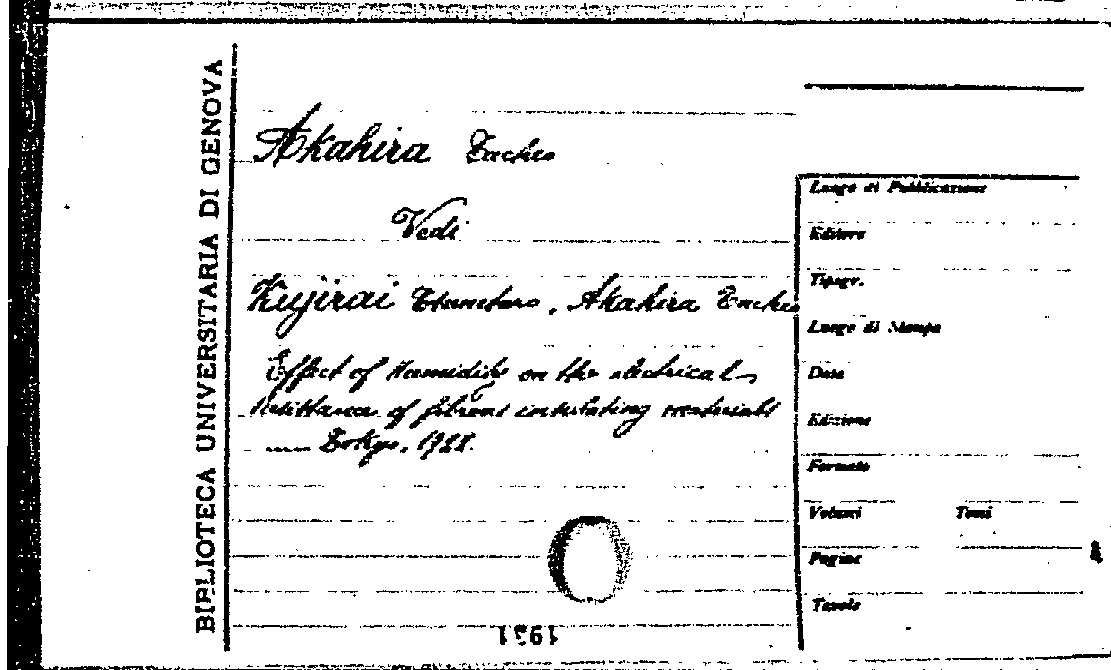 BIBLIOTECA UNIVERSITARIA DI GENOVA
Akahira Taches
Vedi
Kujirai Tsunetaro, Akahira Taches
Effect of Humidity on the electrical
resistance of fibrous insulating materials
.... Tokyo,
Luogo di Pubblicazione
Editore
Tipogr.
Luogo di Stampa
Data
Edizione
Formato
Volumi Tomi
Pagine
Tavole
1931